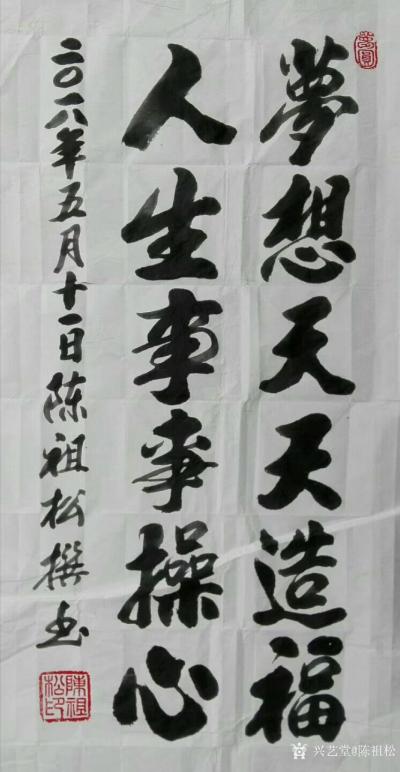 夢想天天造福
人生事事操心
二〇一八年五月十一日陈祖松撰书
陳祖松印
兴艺堂@陈祖松